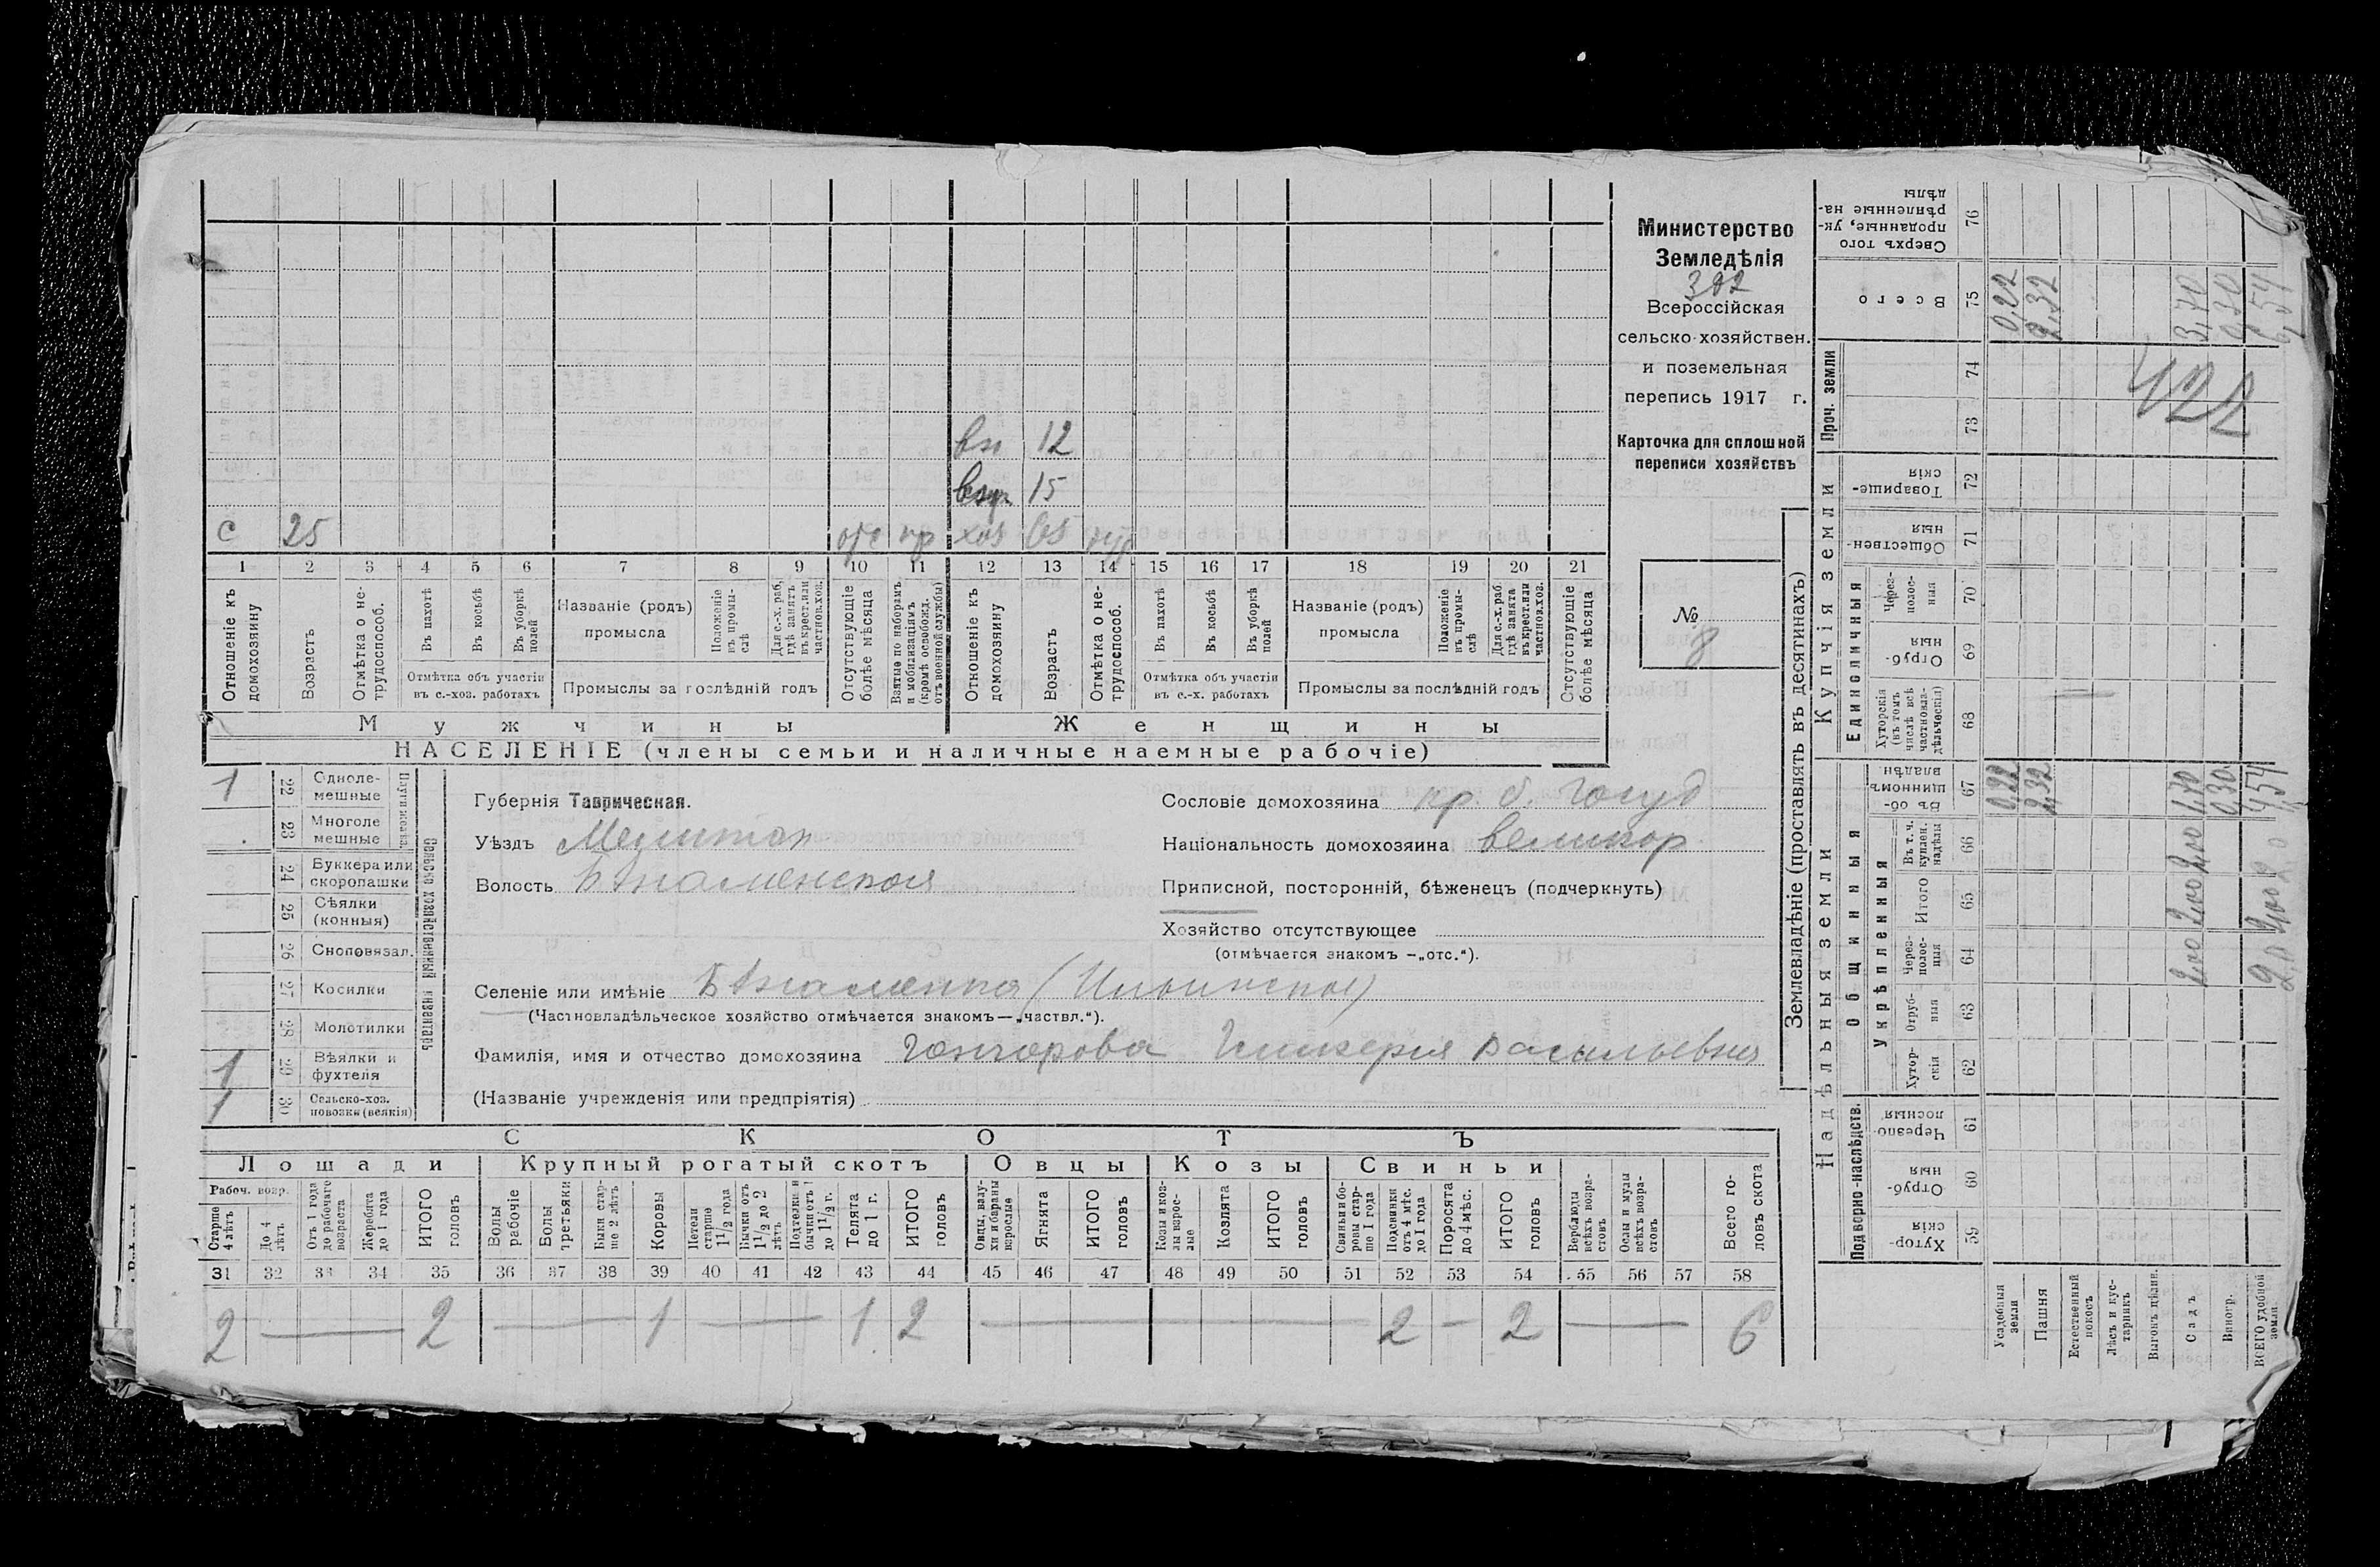 Министерство
Земледѣлія
Всероссійская
сельско-хозяйствен.
и поземельная
перепись 1917 г.
Карточка для сплошной
переписи хозяйствъ
№
8
вн 12
15
с 25 хоз 65
1 2 3 4 5 6 7 8 9 10 11 12 13 14 15 16 17 18 19 20 21
Отношеніе къ домохозяину
Возрастъ
Отмѣтка о нетрудоспособ.
Въ пахотѣ
Въ косьбѣ
Въ уборкѣ полей
Отмѣтка объ участіи въ с.-хоз. работахъ
Названіе (родъ) промысла
Положеніе въ промыслѣ
Для с.-х. раб. гдѣ занятъ въ крест. или частнов. хоз.
Промыслы за послѣдній годъ
Отсутствующіе болѣе мѣсяца
Взятые по наборамъ и мобилизаціямъ (кромѣ освобожд. отъ военной службы)
Отношеніе къ домохозяину
Возрастъ
Отмѣтка о нетрудоспособ.
Въ пахотѣ
Въ косьбѣ
Въ уборкѣ полей
Отмѣтка объ участіи въ с.-х. работахъ
Названіе (родъ) промысла
Положеніе въ промыслѣ
Для с.-х. раб. гдѣ занята въ крест. или частнов. хоз.
Промыслы за послѣдній годъ
Отсутствующіе болѣе мѣсяца
Мужчины Женщины
НАСЕЛЕНІЕ (члены семьи и наличные наемные рабочіе)
1 22 Одноле-мешные
23 Многоле мешные
24 Буккера или скоропашки
25 Сѣялки (конныя)
26 Сноповязал.
27 Косилки
28 Молотилки
1 29 Вѣялки и фухтеля
1 30 Сельско-хоз. повозки (всякія)
Сельско хозяйственный инвентарь
Губернія Таврическая.
Уѣздъ Мелитоп
Волость Б Знаменская
Сословіе домохозяина кр. б. Госуд
Національность домохозяина великор
Приписной, посторонній, бѣженецъ (подчеркнуть)
Хозяйство отсутствующее
(отмѣчается знакомъ —„отс.“).
Селеніе или имѣніе Б Знаменка (Ильинское)
(Частновладѣльческое хозяйство отмѣчается знакомъ—„частвл.“).
Фамилія, имя и отчество домохозяина Гончарова Гликерия Васильевна
(Названіе учрежденія или предпріятія)
СКОТЪ
Лошади Крупный рогатый скотъ Овцы Козы Свиньи
Рабоч. возр.
Старше 4 лѣтъ
До 4 лѣтъ
Отъ 1 года до рабочаго возраста
Жеребята до 1 года
ИТОГО головъ
Волы рабочіе
Волы третьяки
Быки старше 2 лѣтъ
Коровы
Нетели старше 1 1/2 года
Бычки отъ 1 1/2 до 2 лѣтъ
Телята до 1 г.
ИТОГО головъ
Ягнята
ИТОГО головъ
Козлята
ИТОГО головъ
Свиньи и боровы старше 1 года
Подсвинки отъ 4 мѣс. до 1 года
Поросята до 4 мѣс.
ИТОГО головъ
Верблюды всѣхъ возрастовъ
Ослы и мулы всѣхъ возрастовъ
Всего головъ скота
31 32 33 34 35 36 37 38 39 40 41 42 43 44 45 46 47 48 49 50 51 52 53 54 55 56 57 58
2 — 2 — 1 — 1 2 — 2 — 2 — 6
Землевладѣніе (проставлять въ десятинахъ)
Надѣльныя земли
Купчія земли
Проч. земли
Подворно-наслѣдств.
Общинныя
Укрѣпленныя
Единоличныя
Сверхъ того проданные, укрѣпленные надѣлы 76
Всего 75 0,22 2,32 3,70 0,30 6,54
74
73
Товарищескія 72
Общественныя 71
Черезполосныя 70
Отрубныя 69
Хуторскія (въ томъ числѣ всѣ частновладѣльческія) 68
Въ общинномъ владѣн. 67 0,22 2,32 1,70 0,30 4,54
Въ т. ч. куплен. надѣлы 66
Итого 65
Черезполосныя 64
Отрубныя 63
Хуторскія 62
Черезполосныя 61
Отрубныя 60
Хуторскія 59
Усадебныя земли
Пашня
Естественный покосъ
Лѣсъ и кустарникъ
Выгонъ цѣлин.
Садъ
Виногр.
ВСЕГО удобной земли